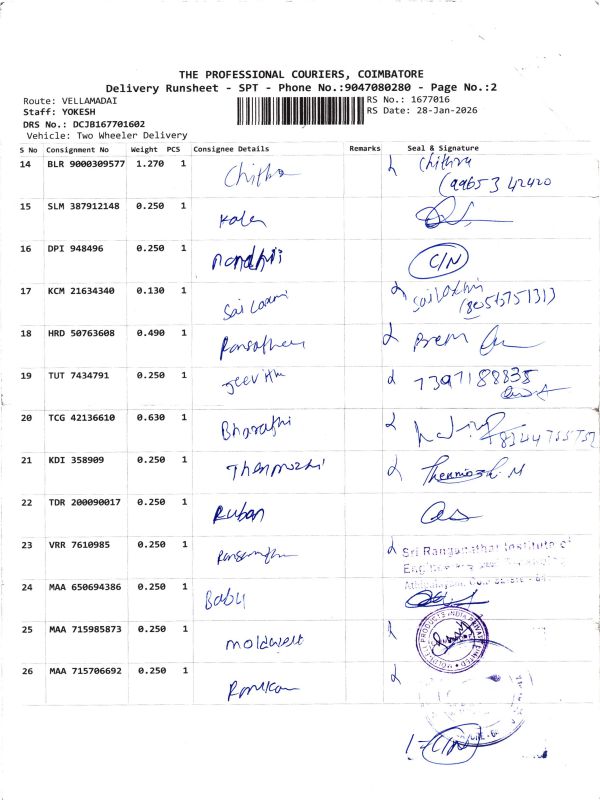 THE PROFESSIONAL COURIERS, COIMBATORE
Delivery Runsheet - SPT - Phone No.:9047080280 - Page No.:2
Route: VELLAMADAI RS No.: 1677016
Staff: YOKESH RS Date: 28-Jan-2026
DRS No.: DCJB167701602
Vehicle: Two Wheeler Delivery
S No Consignment No Weight PCS Consignee Details Remarks Seal & Signature
14 BLR 9000309577 1.270 1 Chithra Chithra
99653 42420
15 SLM 387912148 0.250 1 Kala
16 DPI 948496 0.250 1 nandhii C/N
17 KCM 21634340 0.130 1 Sai Laxmi Sailaxmi
18 HRD 50763608 0.490 1 Prem
19 TUT 7434791 0.250 1 Jeevitha 7397188835
20 TCG 42136610 0.630 1 Bharathi
21 KDI 358909 0.250 1 Thenmozhi Thenmozhi M
22 TDR 200090017 0.250 1 Ruban
23 VRR 7610985 0.250 1 Sri Ranganathar Institute of
24 MAA 650694386 0.250 1 Babu
25 MAA 715985873 0.250 1 moldwell
26 MAA 715706692 0.250 1
C/N